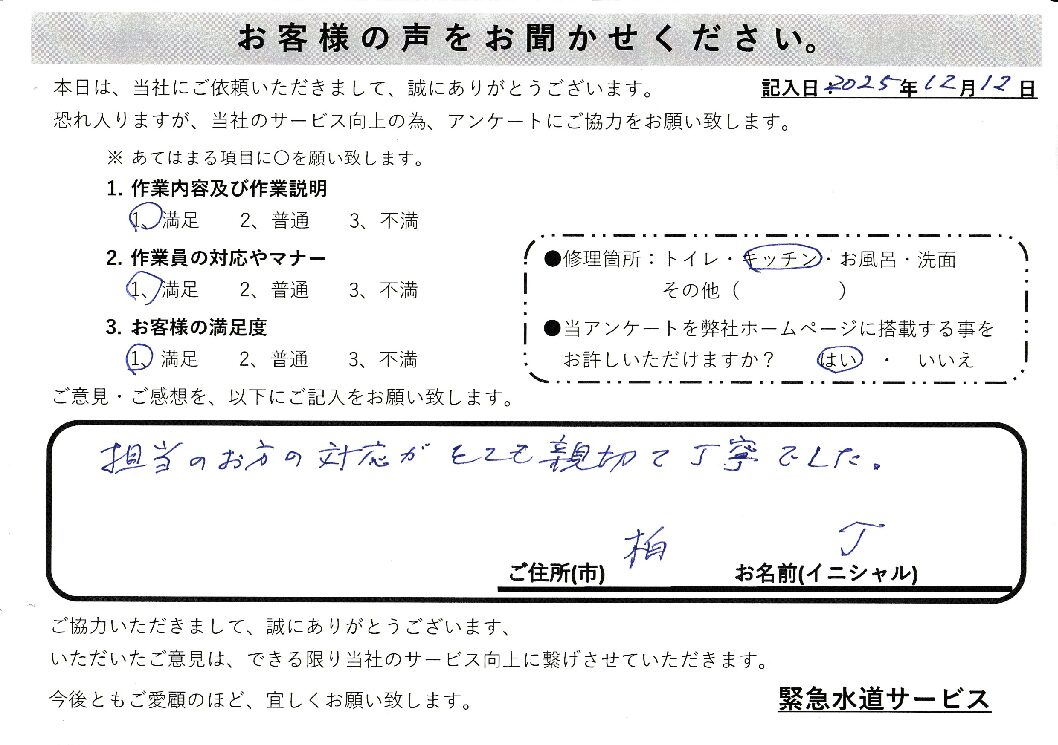 お客様の声をお聞かせください。
本日は、当社にご依頼いただきまして、誠にありがとうございます。
記入日:2025年12月12日
恐れ入りますが、当社のサービス向上の為、アンケートにご協力をお願い致します。
※ あてはまる項目に〇を願い致します。
1. 作業内容及び作業説明
1、満足 2、普通 3、不満
2. 作業員の対応やマナー
1、満足 2、普通 3、不満
3. お客様の満足度
1、満足 2、普通 3、不満
●修理箇所：トイレ・キッチン・お風呂・洗面
その他（ ）
●当アンケートを弊社ホームページに搭載する事を
お許しいただけますか？ はい ・ いいえ
ご意見・ご感想を、以下にご記入をお願い致します。
担当のお方の対応がとても親切で丁寧でした。
ご住所(市) 柏 お名前(イニシャル) J
ご協力いただきまして、誠にありがとうございます、
いただいたご意見は、できる限り当社のサービス向上に繋げさせていただきます。
今後ともご愛顧のほど、宜しくお願い致します。
緊急水道サービス